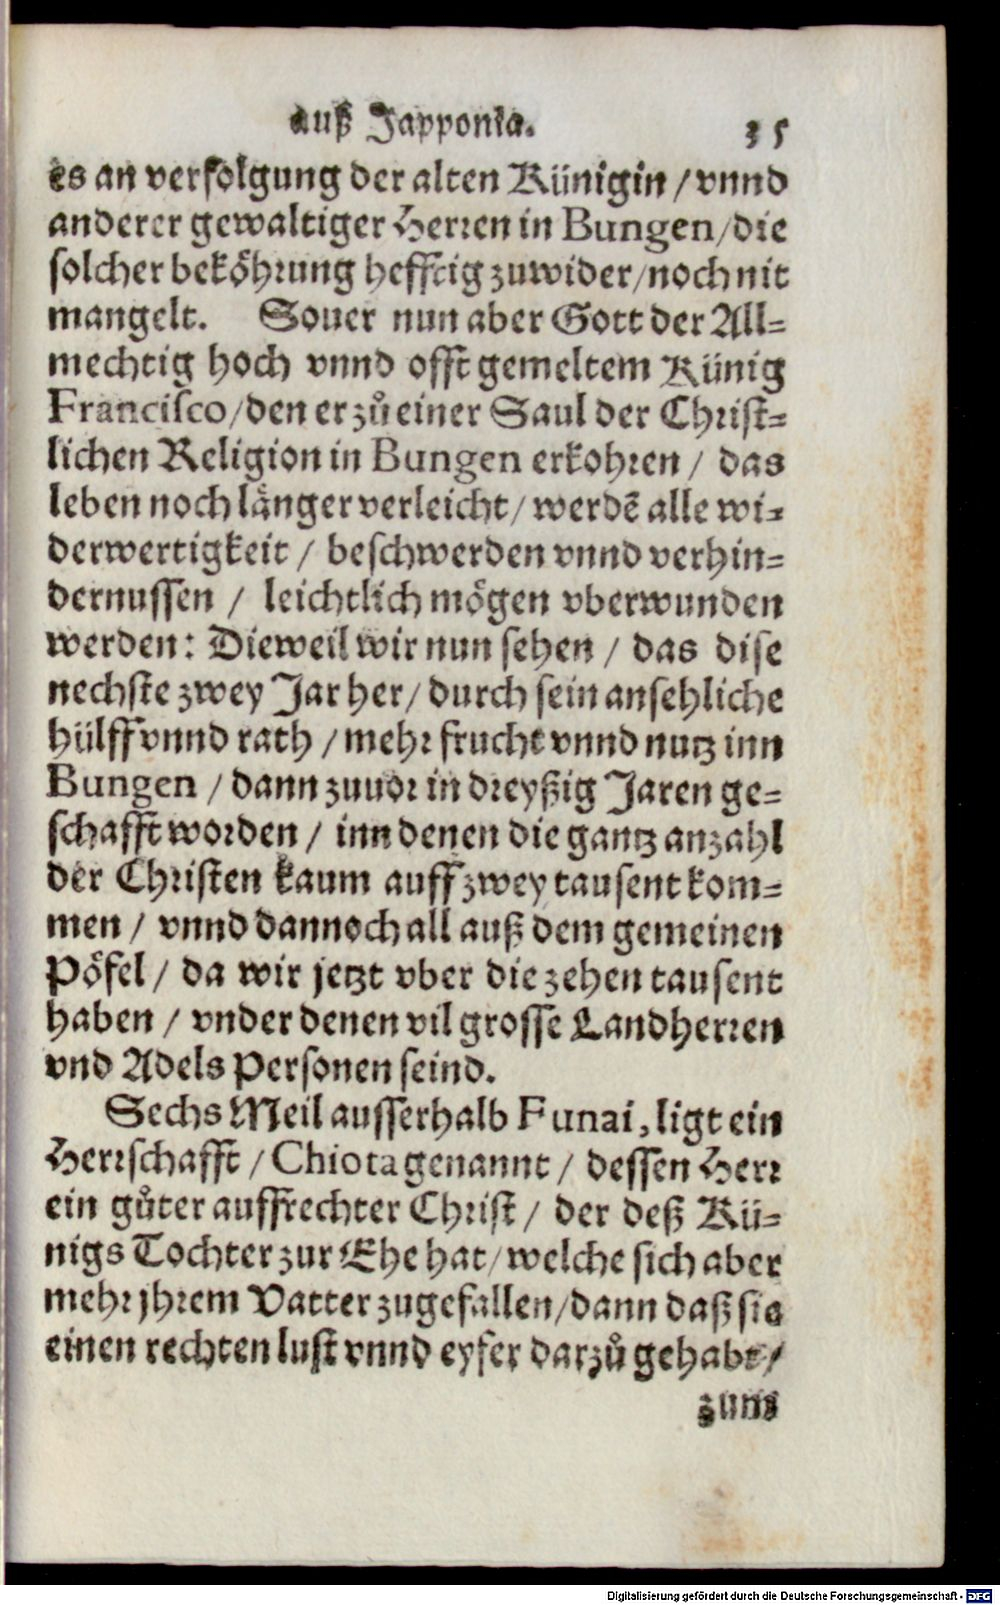 auß Japponia. 35
es an verfolgung der alten Künigin / vnnd
anderer gewaltiger Herren in Bungen / die
solcher beköhrung hefftig zuwider / noch nit
mangelt. Souer nun aber Gott der All-
mechtig hoch vnnd offt gemeltem Künig
Francisco / den er zů einer Saul der Christ-
lichen Religion in Bungen erkohren / das
leben noch länger verleicht / werdē alle wi-
derwertigkeit / beschwerden vnnd verhin-
dernussen / leichtlich mögen vberwunden
werden: Dieweil wir nun sehen / das dise
nechste zwey Jar her / durch sein ansehliche
hülff vnnd rath / mehr frucht vnnd nutz inn
Bungen / dann zuuor in dreyßig Jaren ge-
schafft worden / inn denen die gantz anzahl
der Christen kaum auff zwey tausent kom-
men / vnnd dannoch all auß dem gemeinen
Pöfel / da wir jetzt vber die zehen tausent
haben / vnder denen vil grosse Landherren
vnd Adels Personen seind.
Sechs Meil ausserhalb Funai, ligt ein
Herrschafft / Chiota genannt / dessen Herr
ein gůter auffrechter Christ / der deß Kü-
nigs Tochter zur Ehe hat / welche sich aber
mehr jhrem Vatter zugefallen / dann daß sie
einen rechten lust vnnd eyfer darzů gehabt /
zum
Digitalisierung gefördert durch die Deutsche Forschungsgemeinschaft - DFG